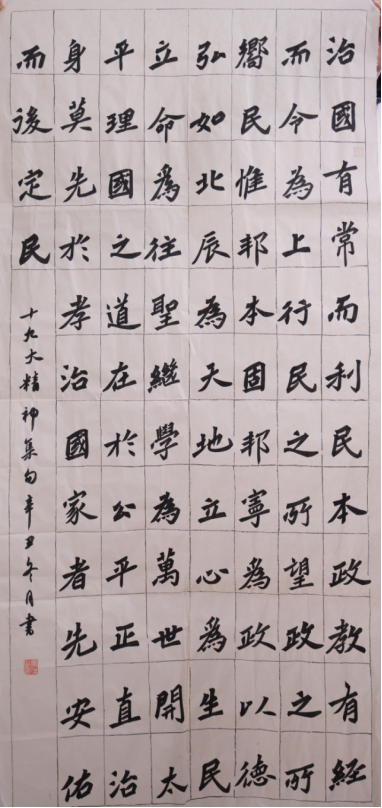 治國有常而利民本政教有經
而令為上行民之所望政之所
嚮民惟邦本固邦寧爲政以德
弘如北辰為天地立心爲生民
立命爲往聖繼學為萬世開太
平理國之道在於公平正直治
身莫先於孝治國家者先安佑
而後定民
十九大精神集句辛丑冬月書